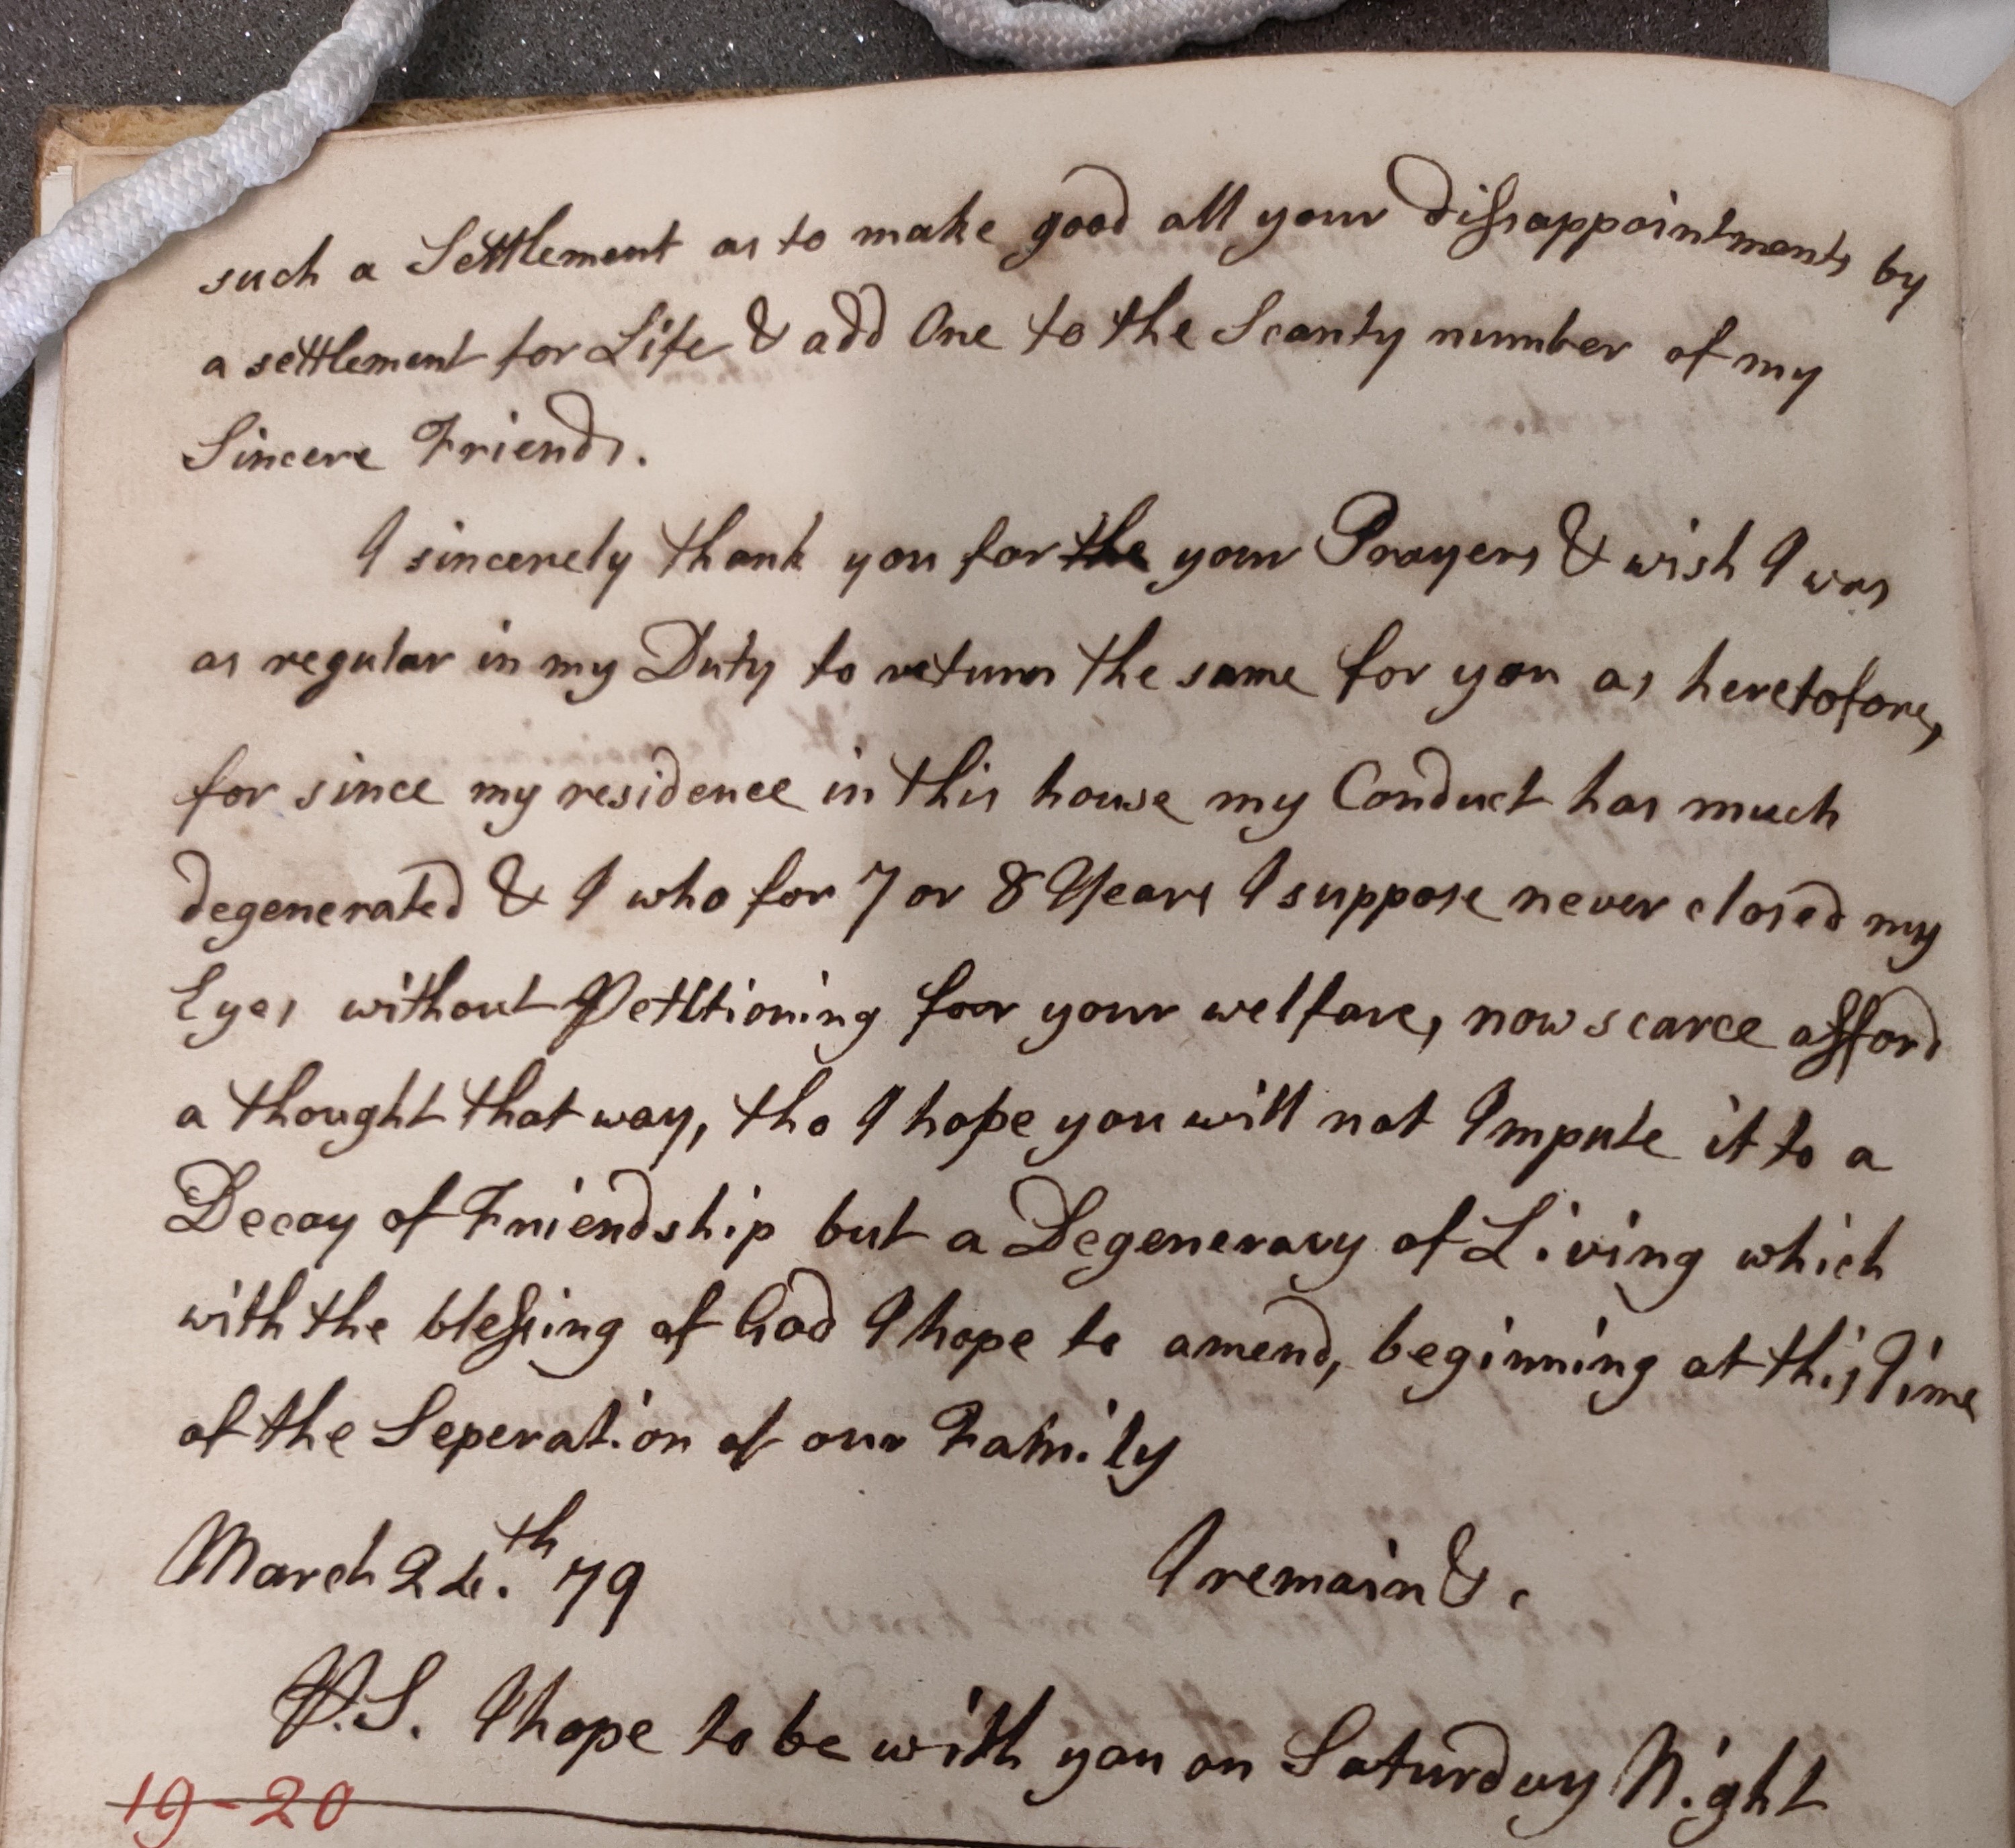 such a Settlement as to make good all your dissappointments by
a settlement for Life & add One to the Scanty number of my
Sincere Friends.
I sincerely thank you for the your Prayers & wish I was
as regular in my Duty to return the same for you as heretofore,
for since my residence in this house my Conduct has much
degenerated & I who for 7 or 8 Years I suppose never closed my
Eyes without Petitioning for your welfare, now scarce afford
a thought that way, tho I hope you will not Impute it to a
Decay of Friendship but a Degeneracy of Living which
with the blessing of God I hope to amend, beginning at this Time
of the Seperation of our Family
March 24.th 79 I remain &c
P.S. I hope to be with you on Saturday Night
19-20